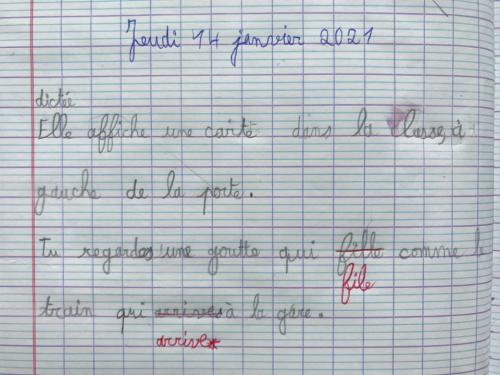 Jeudi 14 janvier 2021
dictée
Elle affiche une carte dans la classe, à
gauche de la porte.
Tu regardes une goutte qui fille comme le
file
train qui arrives à la gare.
arrive